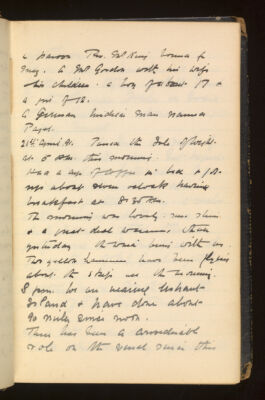 a parson The. McKinj bound for
Eng. A Mr Gordon with his wife
& his children. a boy of about 17 &
a girl of 12.
A German medical man named
21st April 91. Passed the Isle of Wight
at 5 A.m. this morning.
Had a cup of coffee in bed &
up about seven o'clock having
breakfast at 8.30 Am.
The morning was lovely, sun shine
& a great deal warmer than
yesterday the wind being with us.
Two green have been flying
about the ship in the morning.
8 p.m. We are nearing Ushant
Island & have done about
90 miles since noon.
There has been a considerable
on the vessel since this